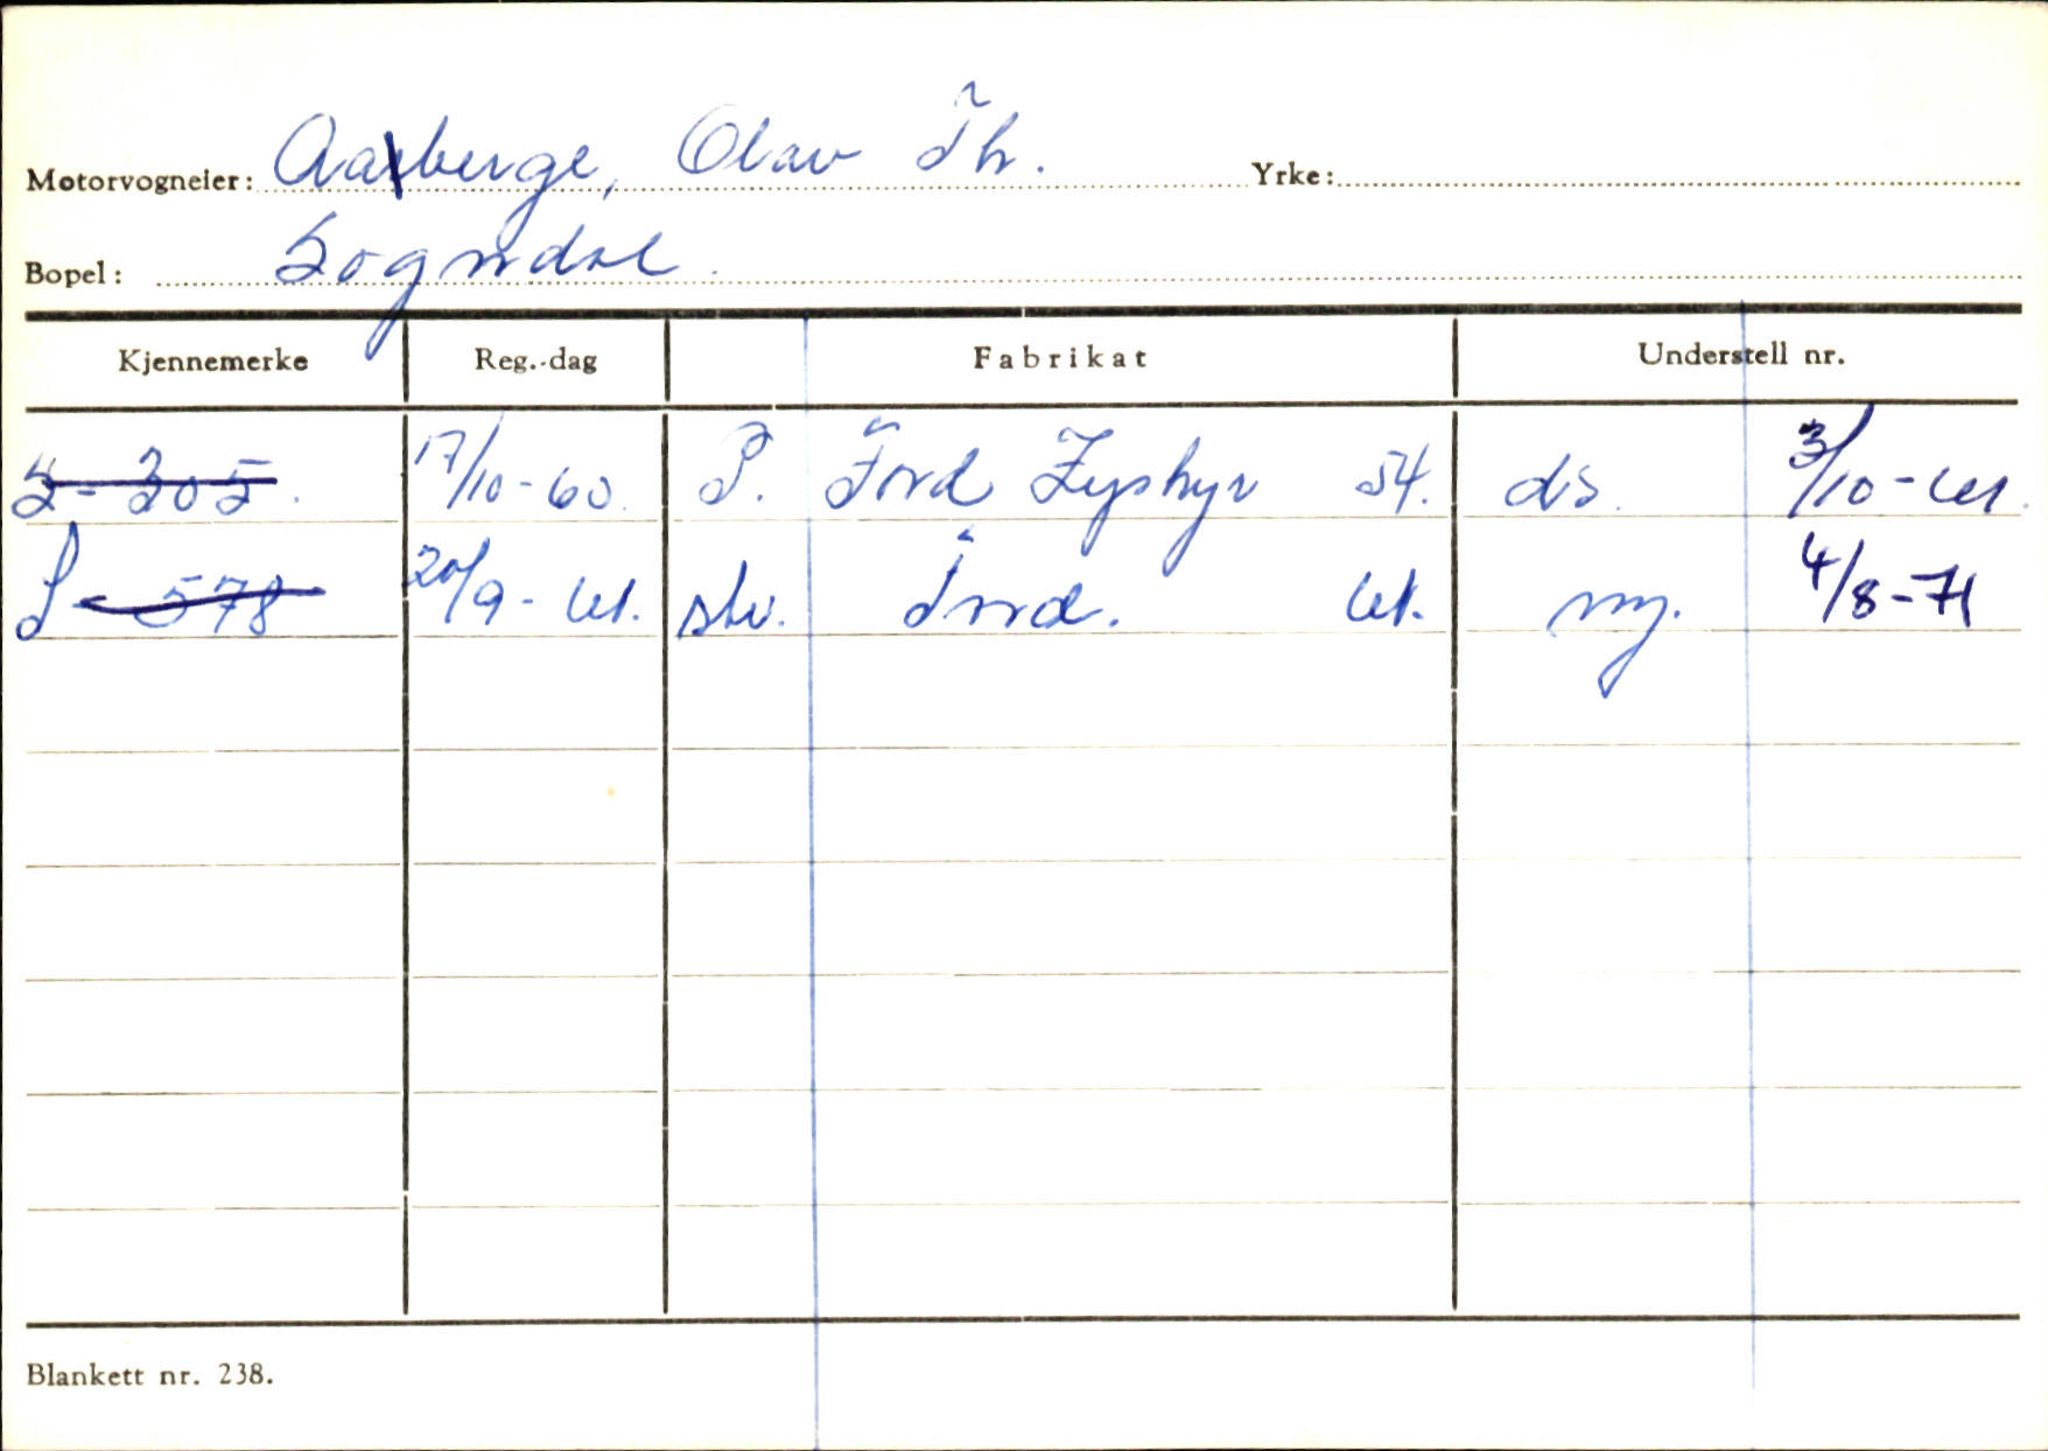 Motorvogneier: Aaberge, Olav Th. Yrke:
Bopel: Sogndal.
Kjennemerke Reg.-dag Fabrikat Understell nr.
S-305. 17/10-60. P. Ford Zephyr 54. ds. 3/10-61.
S-578 20/9-61. stv. Ford. 61. ny. 4/8-71
Blankett nr. 238.